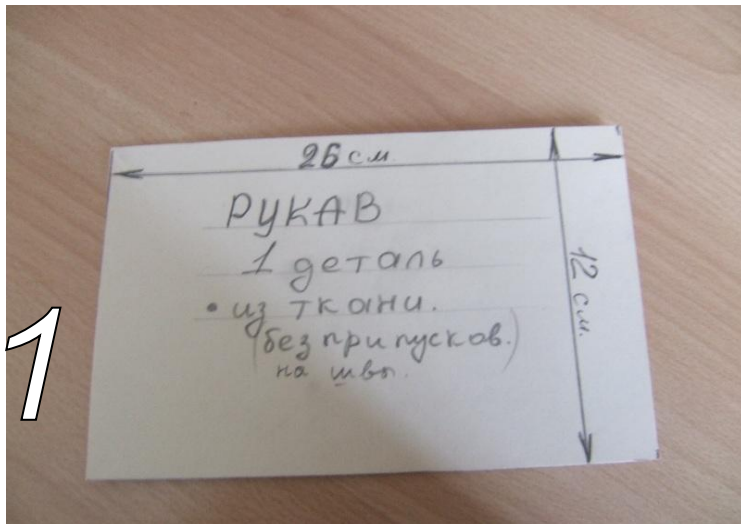 26 см.
РУКАВ
1 деталь
• из ткани.
(без припусков.)
на швы.
12 см.
1